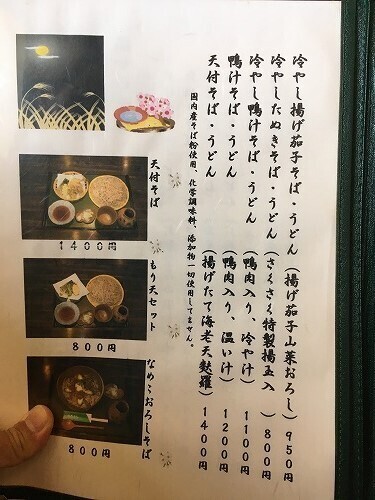 冷やし揚げ茄子そば・うどん（揚げ茄子山菜おろし）950円
冷やしたぬきそば・うどん（さくさく特製揚玉入）800円
冷やし鴨汁そば・うどん（鴨肉入り、冷や汁）1100円
鴨汁そば・うどん（鴨肉入り、温い汁）1200円
天付そば・うどん（揚げたて海老天麩羅）1400円
国内産そば粉使用、化学調味料、添加物一切使用してません。
天付そば
1400円
もり天セット
800円
なめこおろしそば
800円